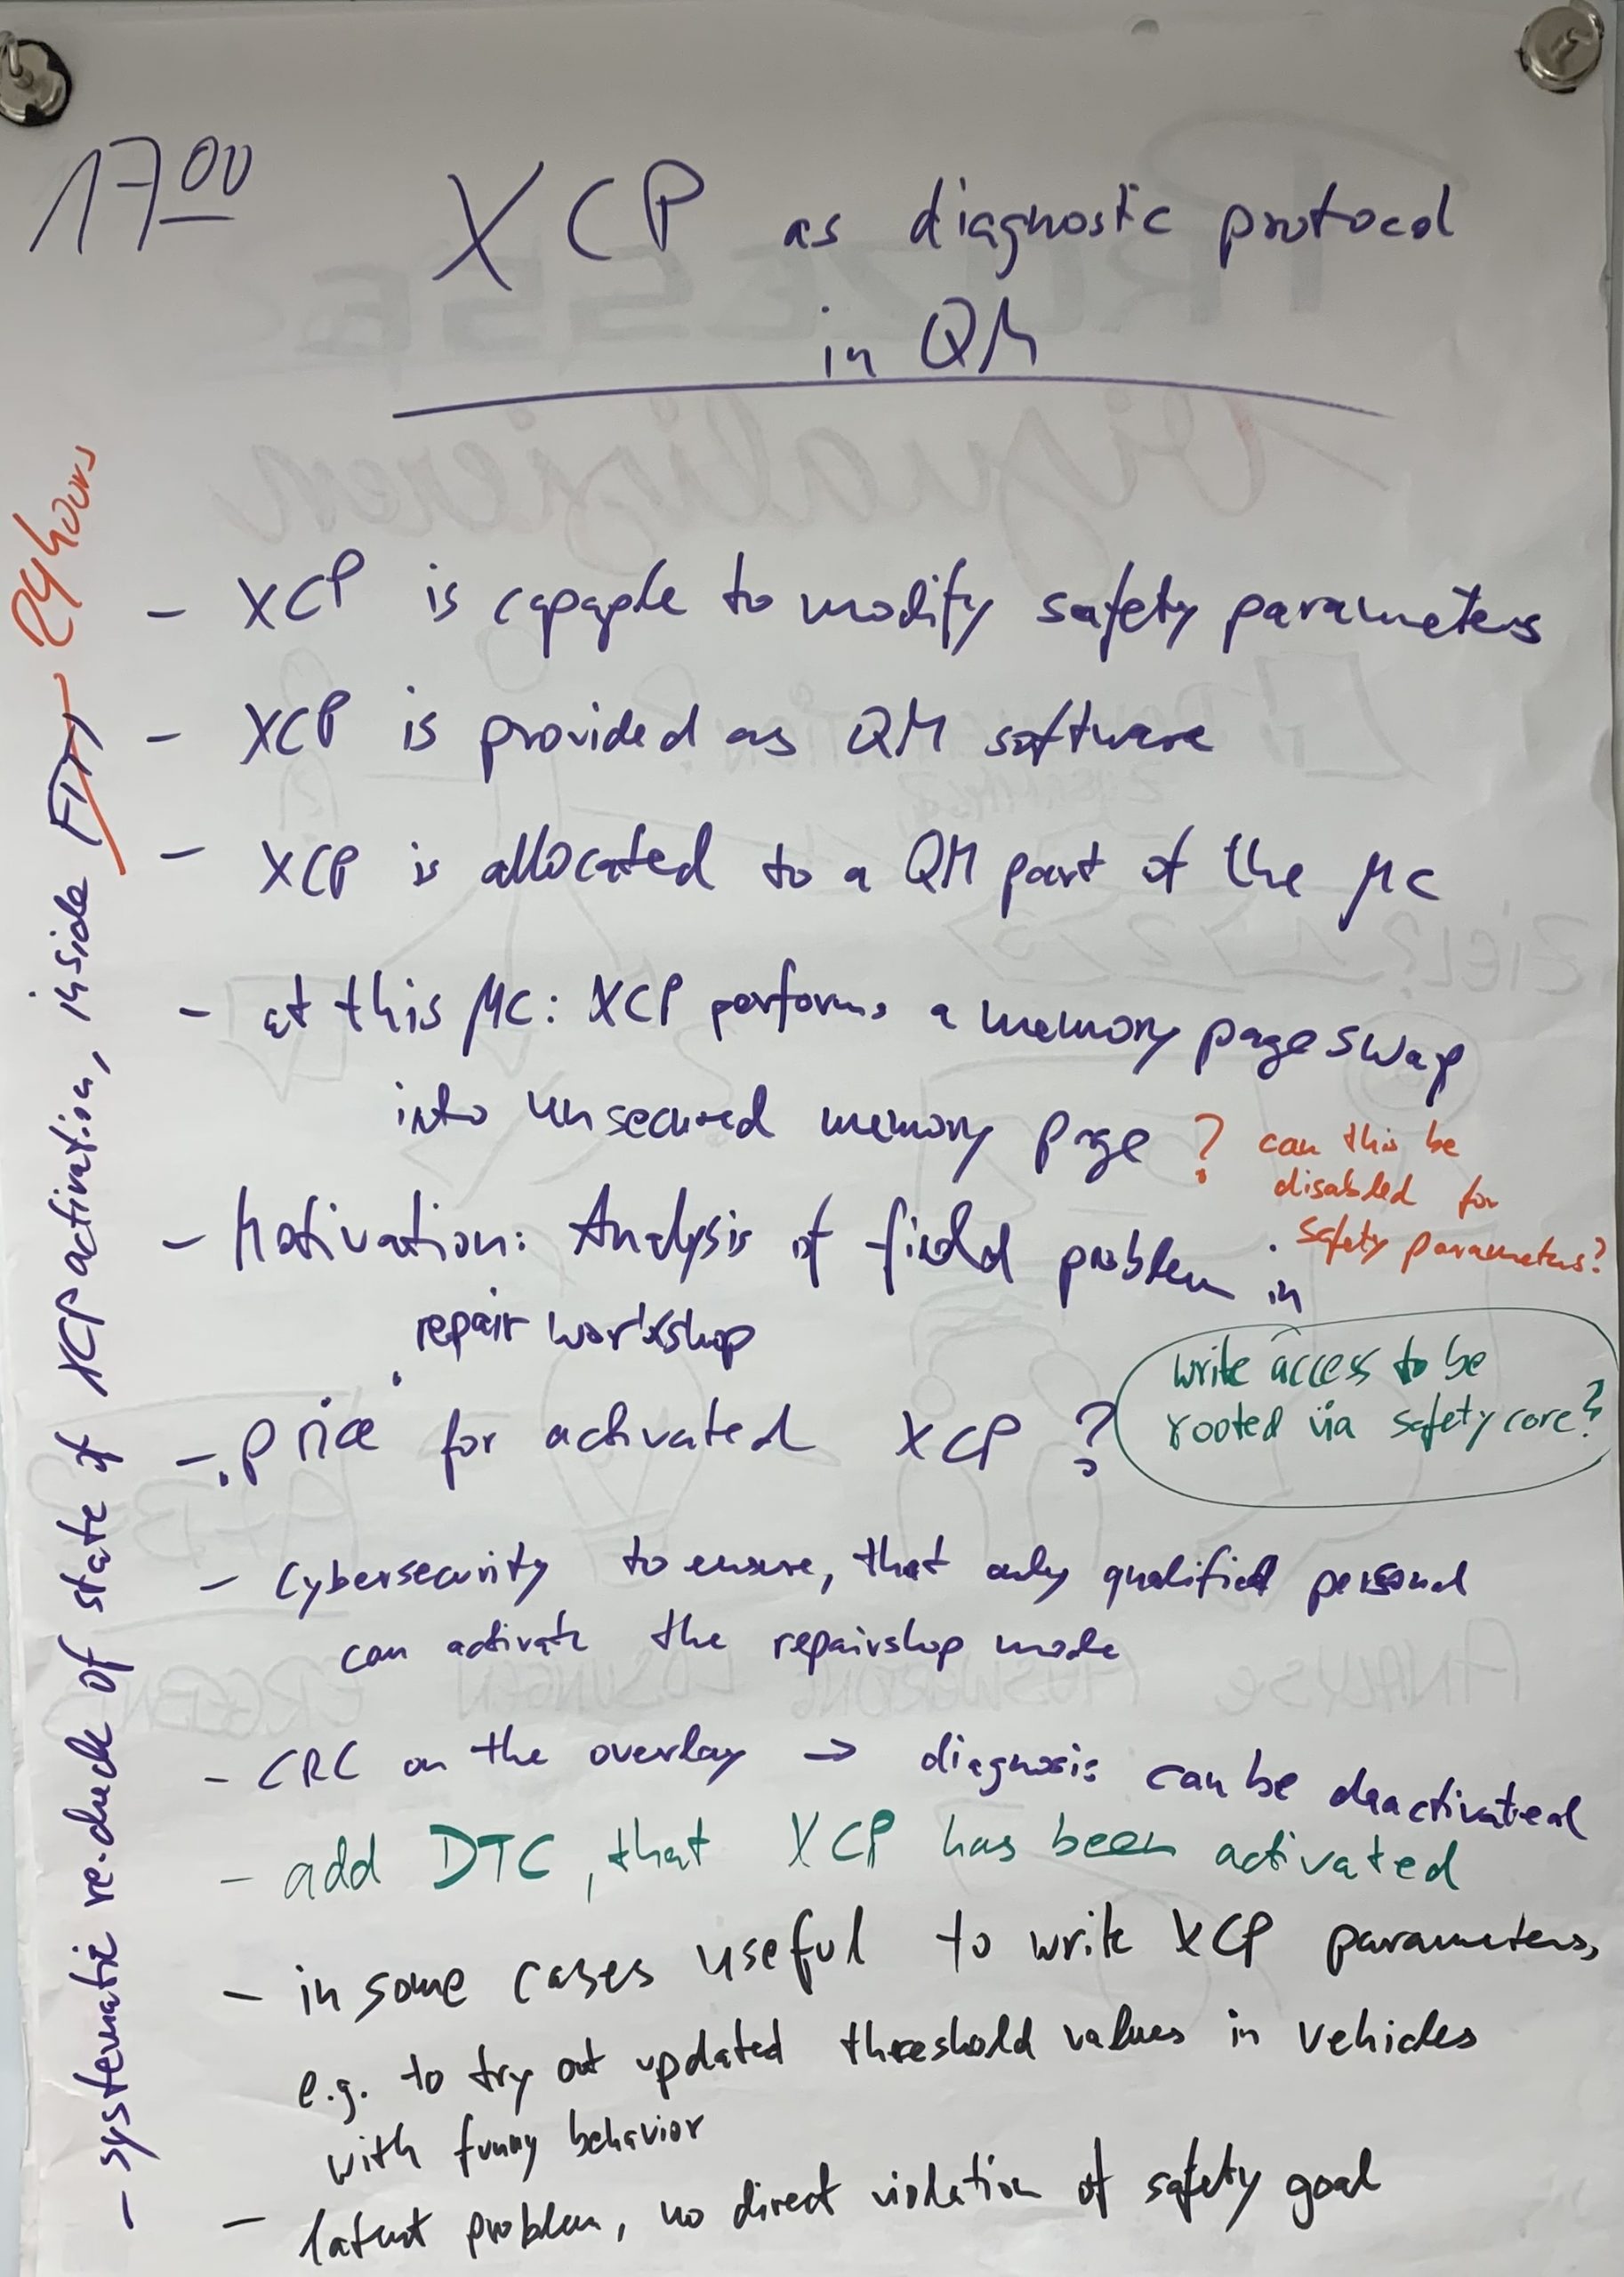 17 00
XCP as diagnostic protocol
in QM
- XCP is capaple to modify safety parameters
- XCP is provided as QM software
- XCP is allocated to a QM part of the µC
- at this µC: XCP performs a memory page swap
into unsecured memory page ? can this be
disabled for
safety parameters?
- Motivation: Analysis of field problem in
repair workshop
write access to be
rooted via safety core?
- price for activated XCP ?
- Cybersecurity to ensure, that only qualified personal
can activate the repairshop mode
- CRC on the overlay → diagnosis can be deactivated
- add DTC, that XCP has been activated
- in some cases useful to write XCP parameters,
e.g. to try out updated threshold values in vehicles
with funny behavior
- latent problem, no direct violation of safety goal
- systematic re-check of state of XCP activation, inside FTTI 24 hours
PROZESSE
- visualisieren
ZIEL?
ANALYSE AUSWERTUNG LÖSUNGEN